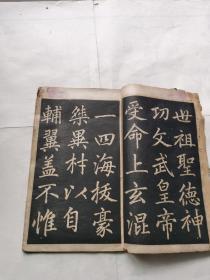 世祖聖德神
功文武皇帝
受命上玄混
一四海拔豪
桀異材以自
輔翼盖不惟